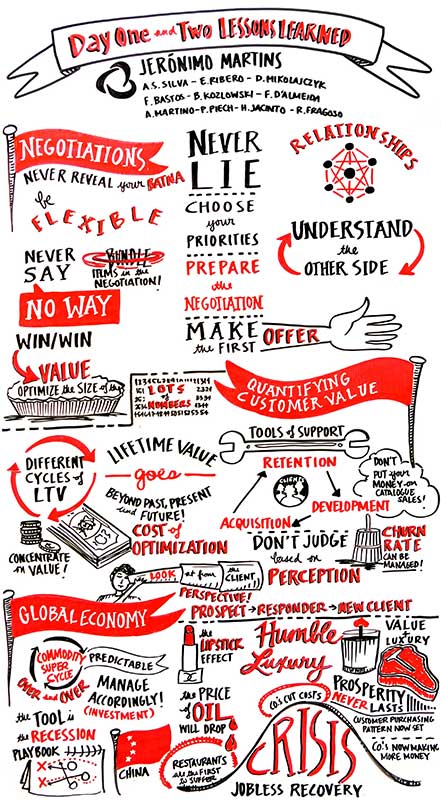 Day One and Two Lessons Learned
JERÓNIMO MARTINS
A.S. SILVA - E. RIBERO - D. MIKOLAJCZYK
F. BASTOS - B. KOZLOWSKI - F. D'ALMEIDA
A. MARTINO - P. PIECH - H. JACINTO - R. FRAGOSO
NEGOTIATIONS
NEVER REVEAL your BATNA
be
FLEXIBLE
NEVER
SAY
NO WAY
BUNDLE
ITEMS in the
NEGOTIATION!
WIN/WIN
VALUE
OPTIMIZE the SIZE of the
NEVER
LIE
CHOOSE
your
PRIORITIES
PREPARE
the
NEGOTIATION
MAKE
the FIRST
OFFER
RELATIONSHIPS
UNDERSTAND
the
OTHER SIDE
LOTS
of
NUMBERS
QUANTIFYING
CUSTOMER VALUE
DIFFERENT
CYCLES of
LTV
LIFETIME VALUE
goes
BEYOND PAST, PRESENT
and
FUTURE!
CONCENTRATE
on VALUE!
COST of
OPTIMIZATION
TOOLS of SUPPORT
RETENTION
CLIENT
DEVELOPMENT
ACQUISITION
DON'T
PUT your
MONEY on
CATALOGUE
SALES!
DON'T JUDGE
based on
PERCEPTION
CHURN
RATE
CAN BE
MANAGED!
LOOK at from the CLIENT,
PERSPECTIVE!
PROSPECT → RESPONDER → NEW CLIENT
GLOBAL ECONOMY
COMMODITY
SUPER
CYCLE
OVER and OVER
PREDICTABLE
MANAGE
ACCORDINGLY!
(INVESTMENT)
the TOOL is
the RECESSION
PLAY BOOK
CHINA
the
LIPSTICK
EFFECT
the PRICE
of OIL
WILL DROP
RESTAURANTS
are the FIRST
to SUFFER
Humble
Luxury
VALUE
or
LUXURY
PROSPERITY
NEVER LASTS
CO's CUT COSTS
CRISIS
CUSTOMER PURCHASING
PATTERN NOW SET
CO's NOW MAKING
MORE MONEY
JOBLESS RECOVERY